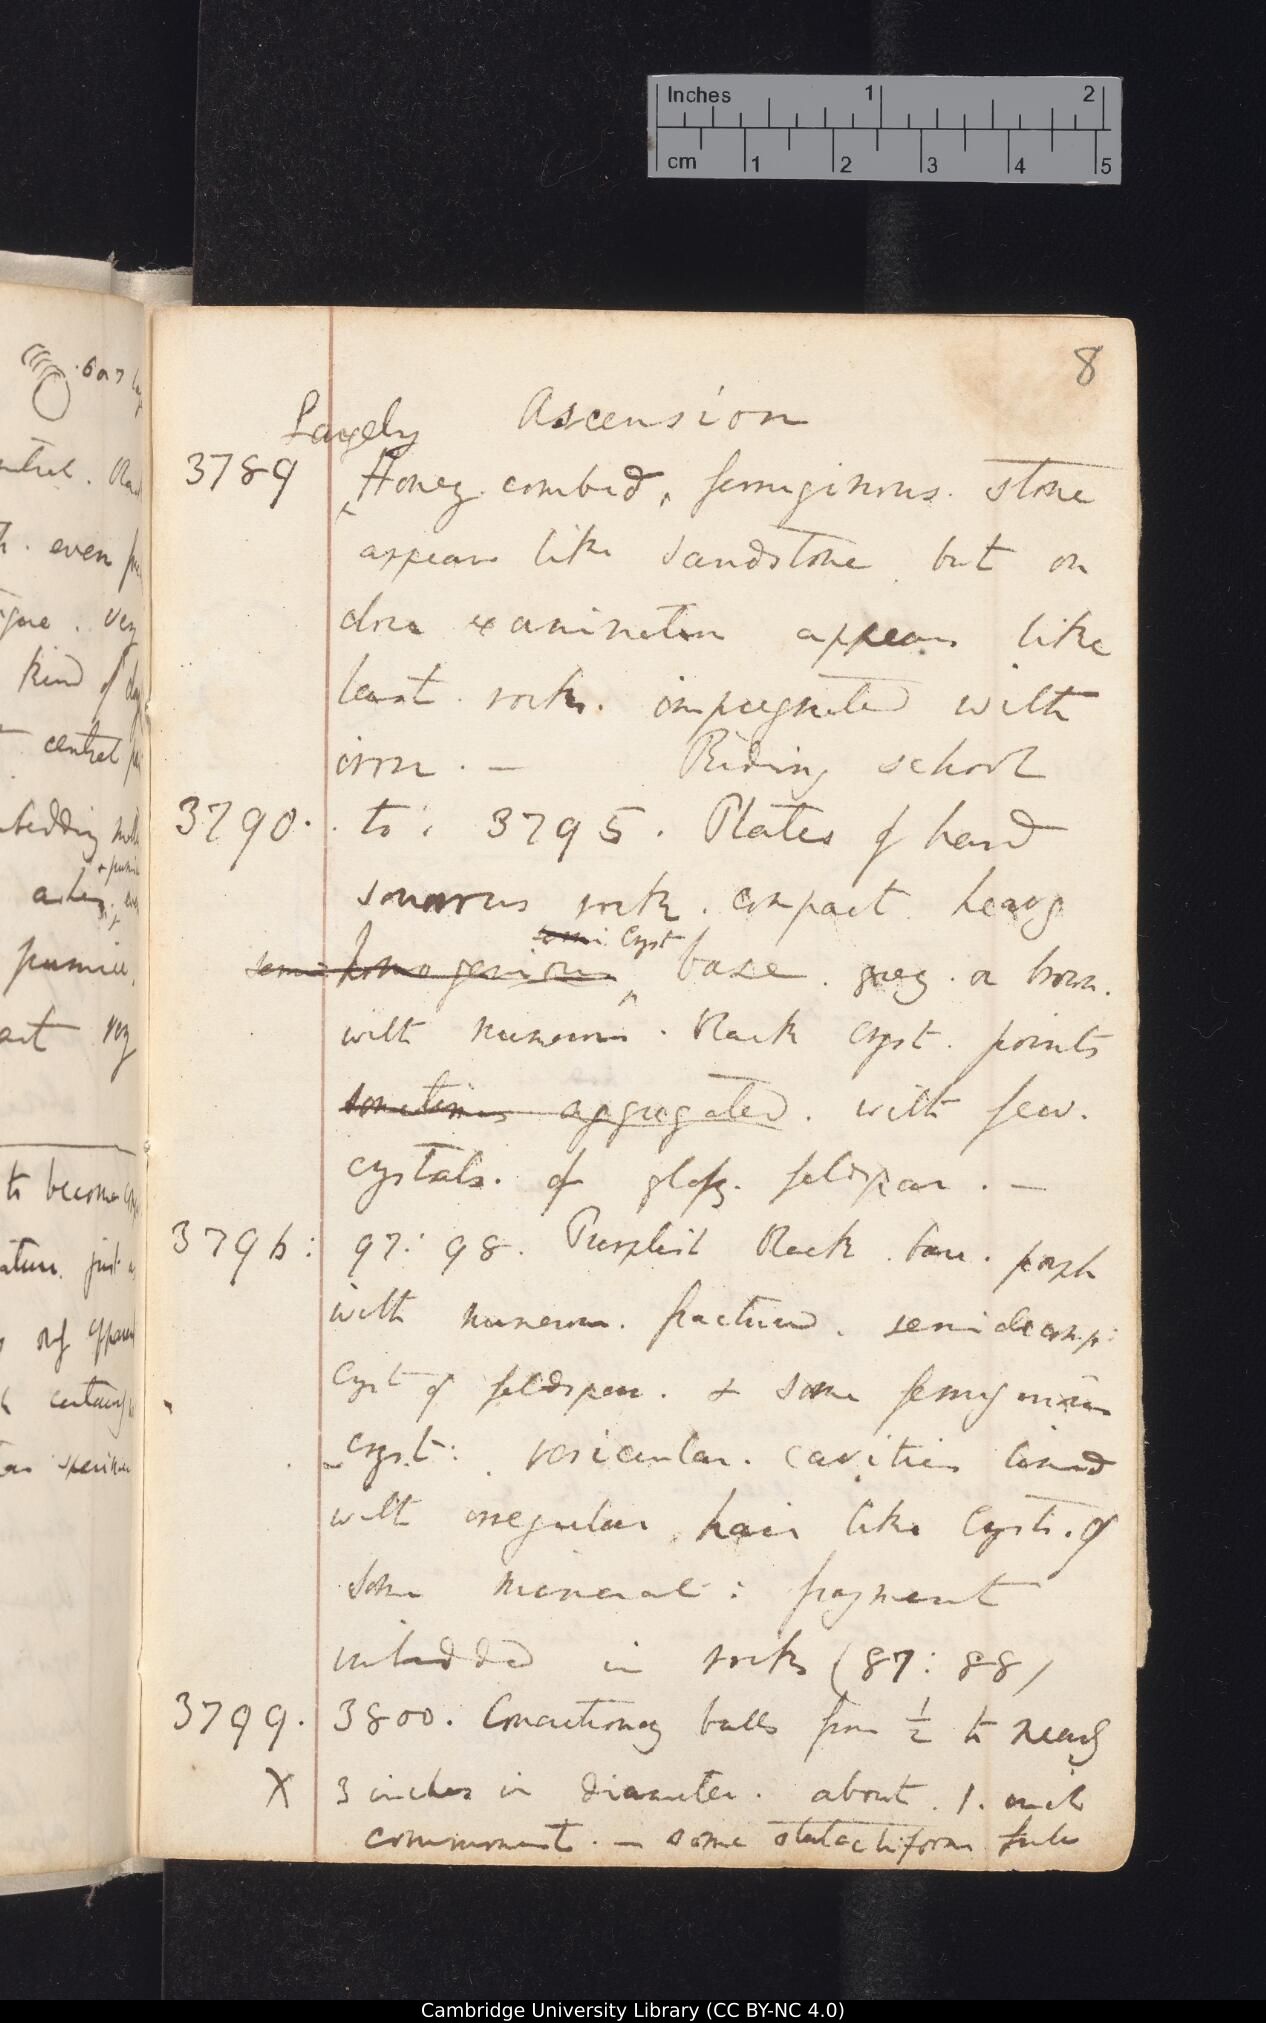 Inches 1 2
cm 1 2 3 4 5
8
Ascension
Largely
3789 Honey combed, ferruginous. stone
appears like sandstone but on
close examination appears like
burst rocks. impregnated with
iron. — Riding school
3790. to: 3795. Plates of hard
sonorous rock. compact heavy
semi cryst
semi-homogenious base. grey. or brown.
with numerous. black cryst. points
sometimes aggregated. with few.
crystals. of glassy. feldspar. —
3796: 97: 98. Purplish black base. porph
with numerous. fractured. semidecomp:
cryst of feldspar. & some ferruginous
cryst: vesicular. cavities lined
with irregular hair like cryst. of
some mineral: fragment
imbedded in rocks (87: 88)
3799. 3800. Concretionary balls from ½ to nearly
X 3 inches in diameter. about. 1. inch
commonest. — some stalactiform
6 or 7
even
very
kind of
central
imbedding
ashes.
pumice
very
to become
just
of
certainly
specimen
Cambridge University Library (CC BY-NC 4.0)